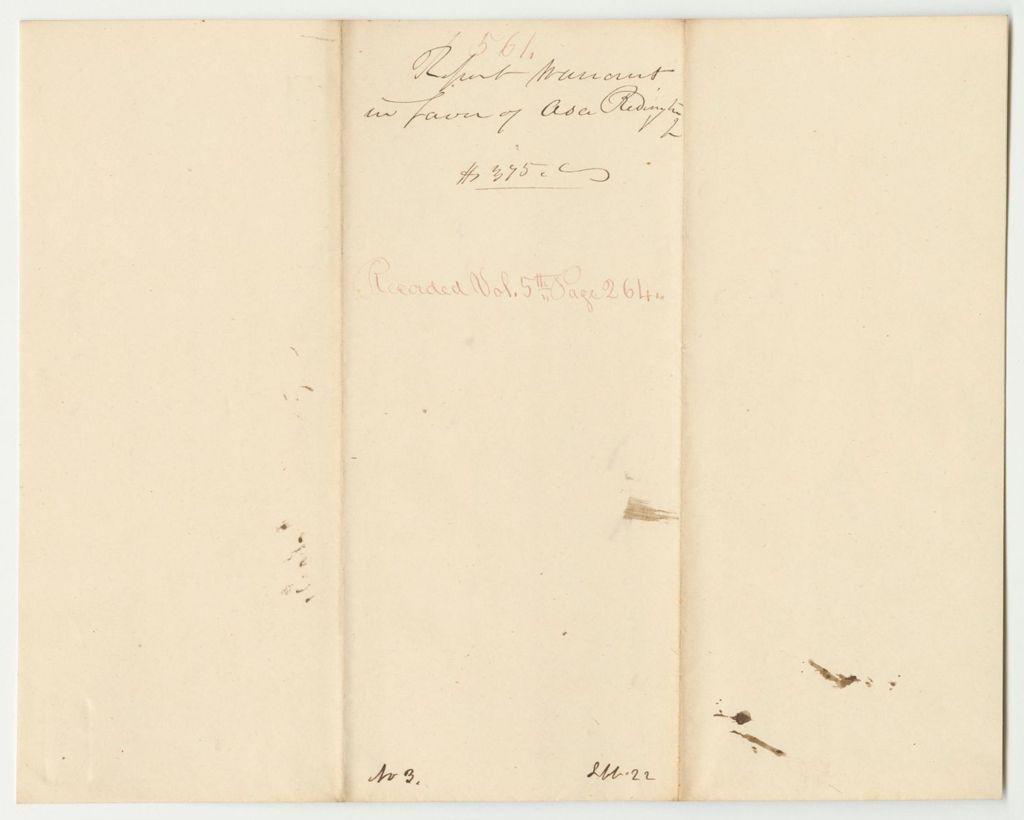 561.
Report Warrant
in favor of Asa Redington
$375.
Recorded Vol. 5th Page 264.
No 3.
22